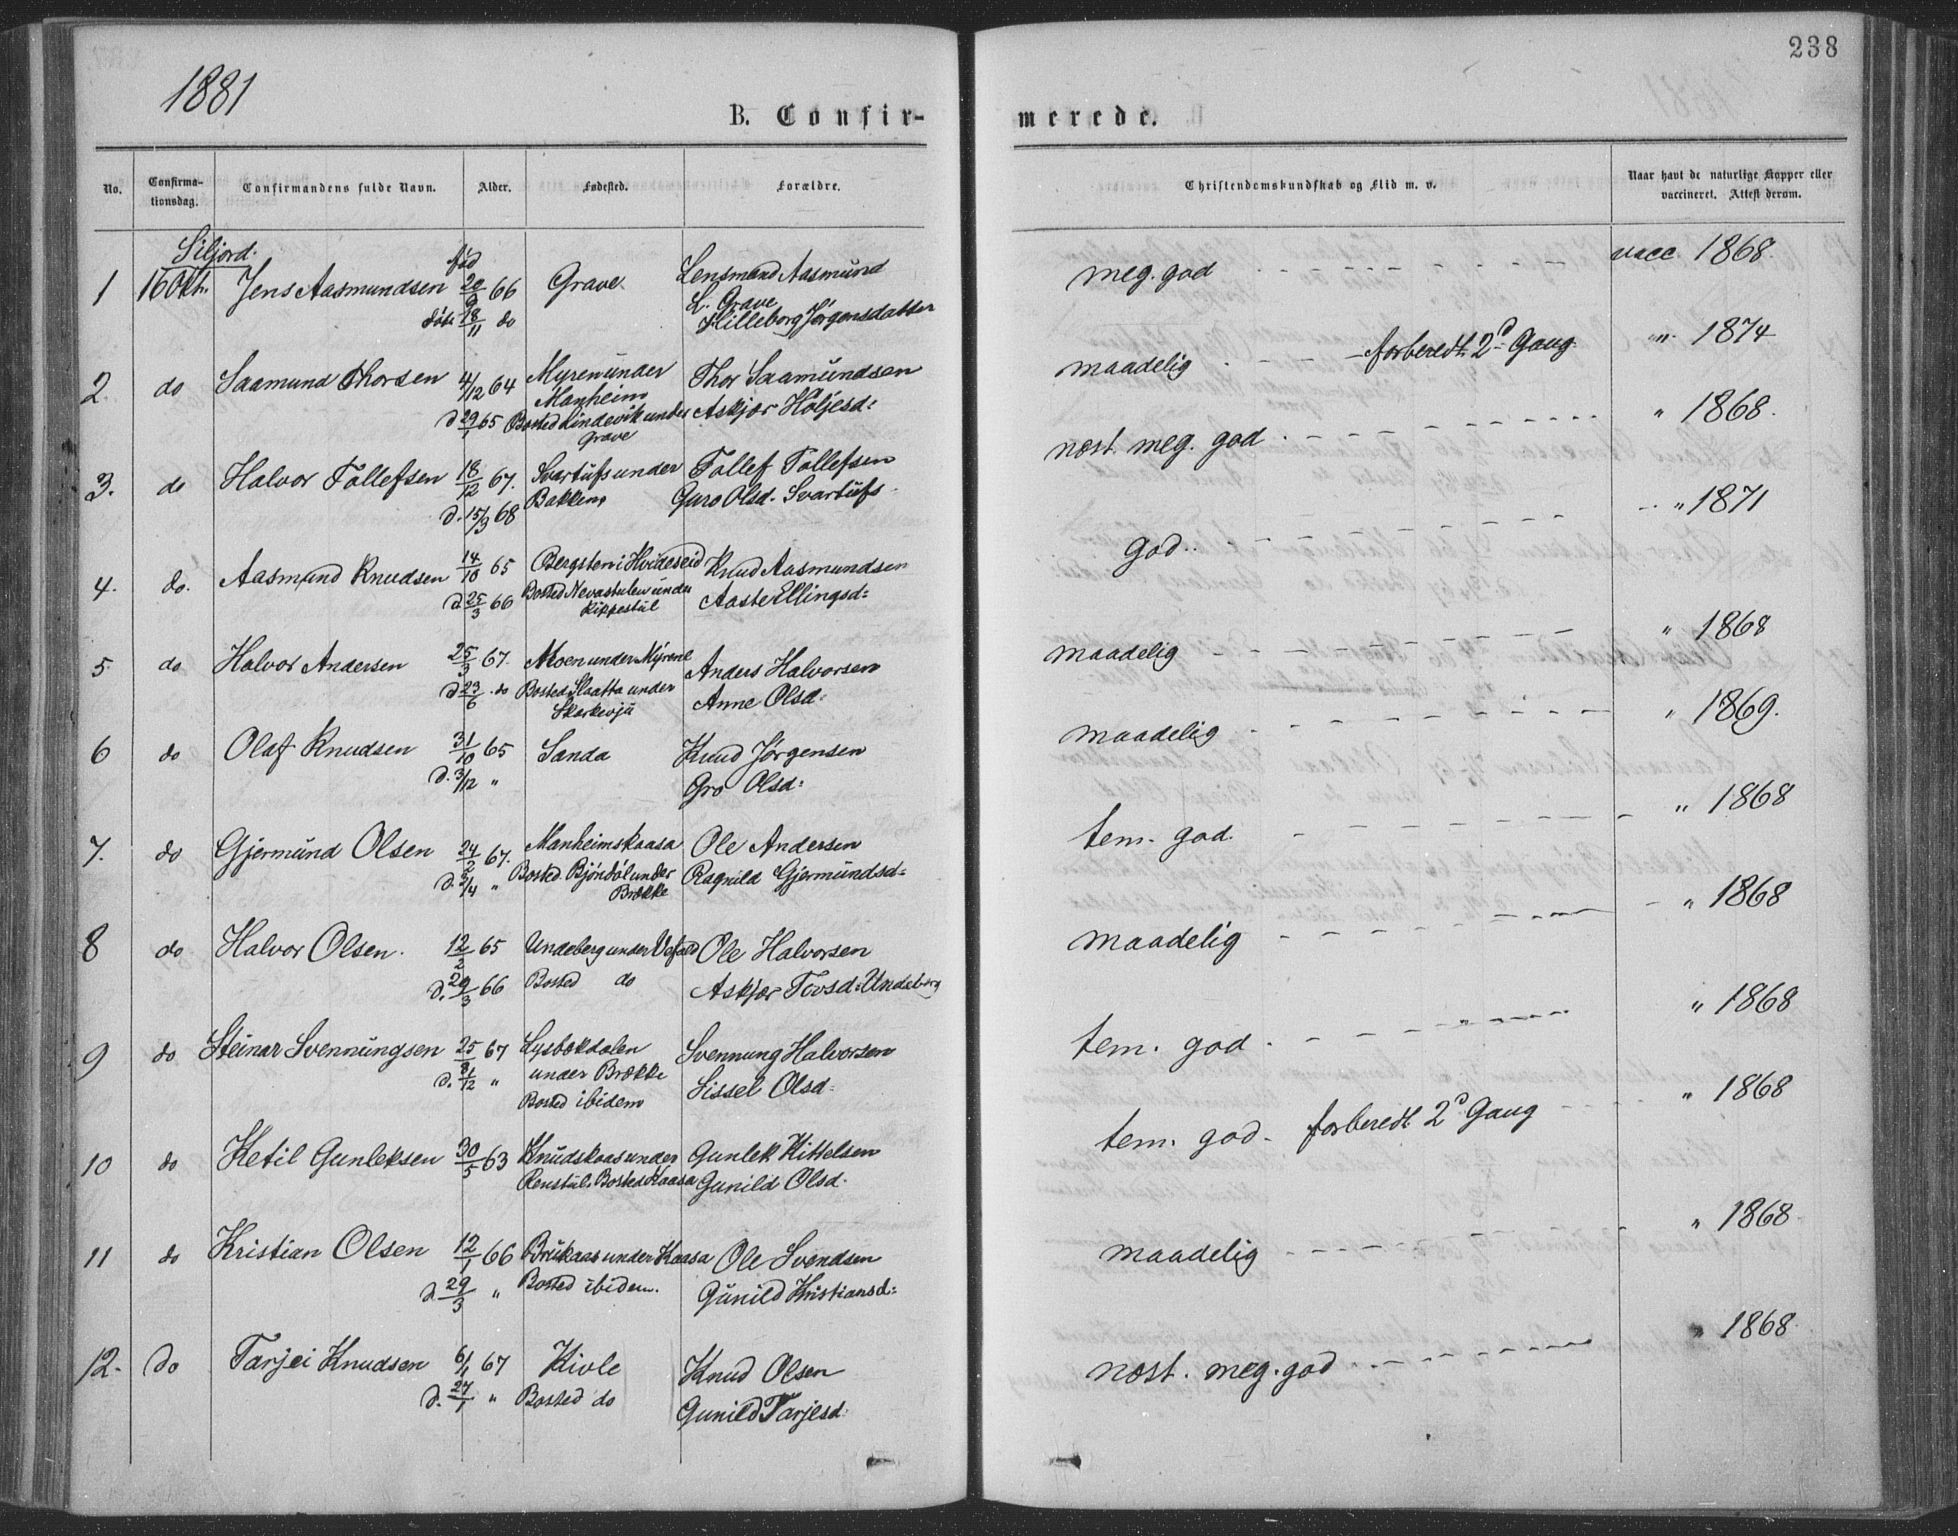 238
1881
B. Confir- merede.
No. Confirma- tionsdag. Confirmandens fulde Navn. Alder. Fødested. Forældre. Christendomskundskab og Flid m. v. Naar havt de naturlige Kopper eller vaccineret. Attest derom.
Siljord.
1 16 Okt. Jens Aasmundsen fød 20/9 66 Grave. Lensmand Aasmund meg. god vacc. 1868.
døbt 18/11 do L. Grave
Hilleborg Jørgensdatter
2. do Saamund Thorsen 4/12 64 Myren under Thor Saamundsen maadelig forberedt 2d Gang " 1874
Manheim
d. 29/1 65 Bosted Lindevik under Askjær Holjesd:
Grave
3. do Halvor Tollefsen 18/12 67. Svartufs under Tollef Tollefsen næst. meg. god " 1868.
d. 15/3 68 Bakken Guro Olsd. Svartufs
4. do. Aasmund Knudsen 14/10 65 Bergsten i Hvideseid Knud Aasmundsen god " 1871
d. 25/3 66 Bosted Nevastulen under Aaste Ellingsd:
Rippestul
5. do Halvor Andersen 25/3 67. Moen under Myrene Anders Halvorsen maadelig " 1868
d. 23/6 do Bosted Slaatta under Anne Olsd:
Skarkevju
6 do Olaf Knudsen 31/10 65 Sanda Knud Jørgensen maadelig " 1869.
d. 3/12 " Gro Olsd:
7. do Gjermund Olsen 24/2 67. Manheimskaasa Ole Andersen tem. god. " 1868
d. 3/4 " Bosted Bjöndöl under Ragnild Gjermundsd:
Brække
8 do Halvor Olsen. 12/2 65 Undeberg under Vefald Ole Halvorsen maadelig " 1868
d. 29/3 66 Bosted do Askjær Tovsd: Undeberg
9 do Steinar Svennungsen 25/8 67 Lysbækdalen Svennung Halvorsen tem. god. " 1868
d. 1/12 " under Brække Sissel Olsd.
Bosted ibidem
10 do Ketil Gunleksen 30/5 63 Knudskaas under Gunlek Kittelsen tem. god. forberedt 2d Gang " 1868
Renstul. Bosted Kaasa Gunild Olsd.
11 do Kristian Olsen 12/1 66 Brukaas under Kaasa Ole Svendsen maadelig " 1868
d. 29/3 " Bosted ibidem. Gunild Kristiansd:
12. do Tarjei Knudsen 6/1 67 Kivle Knud Olsen næst. meg. god " 1868.
d. 27/1 " Bosted do Gunild Tarjesd.